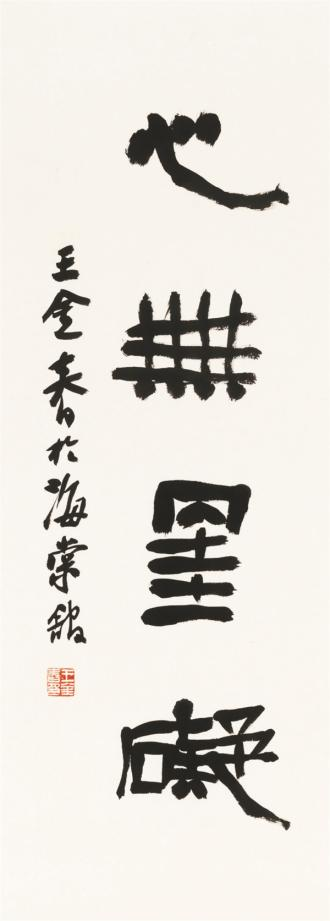 心無罣礙
王金春於海棠館